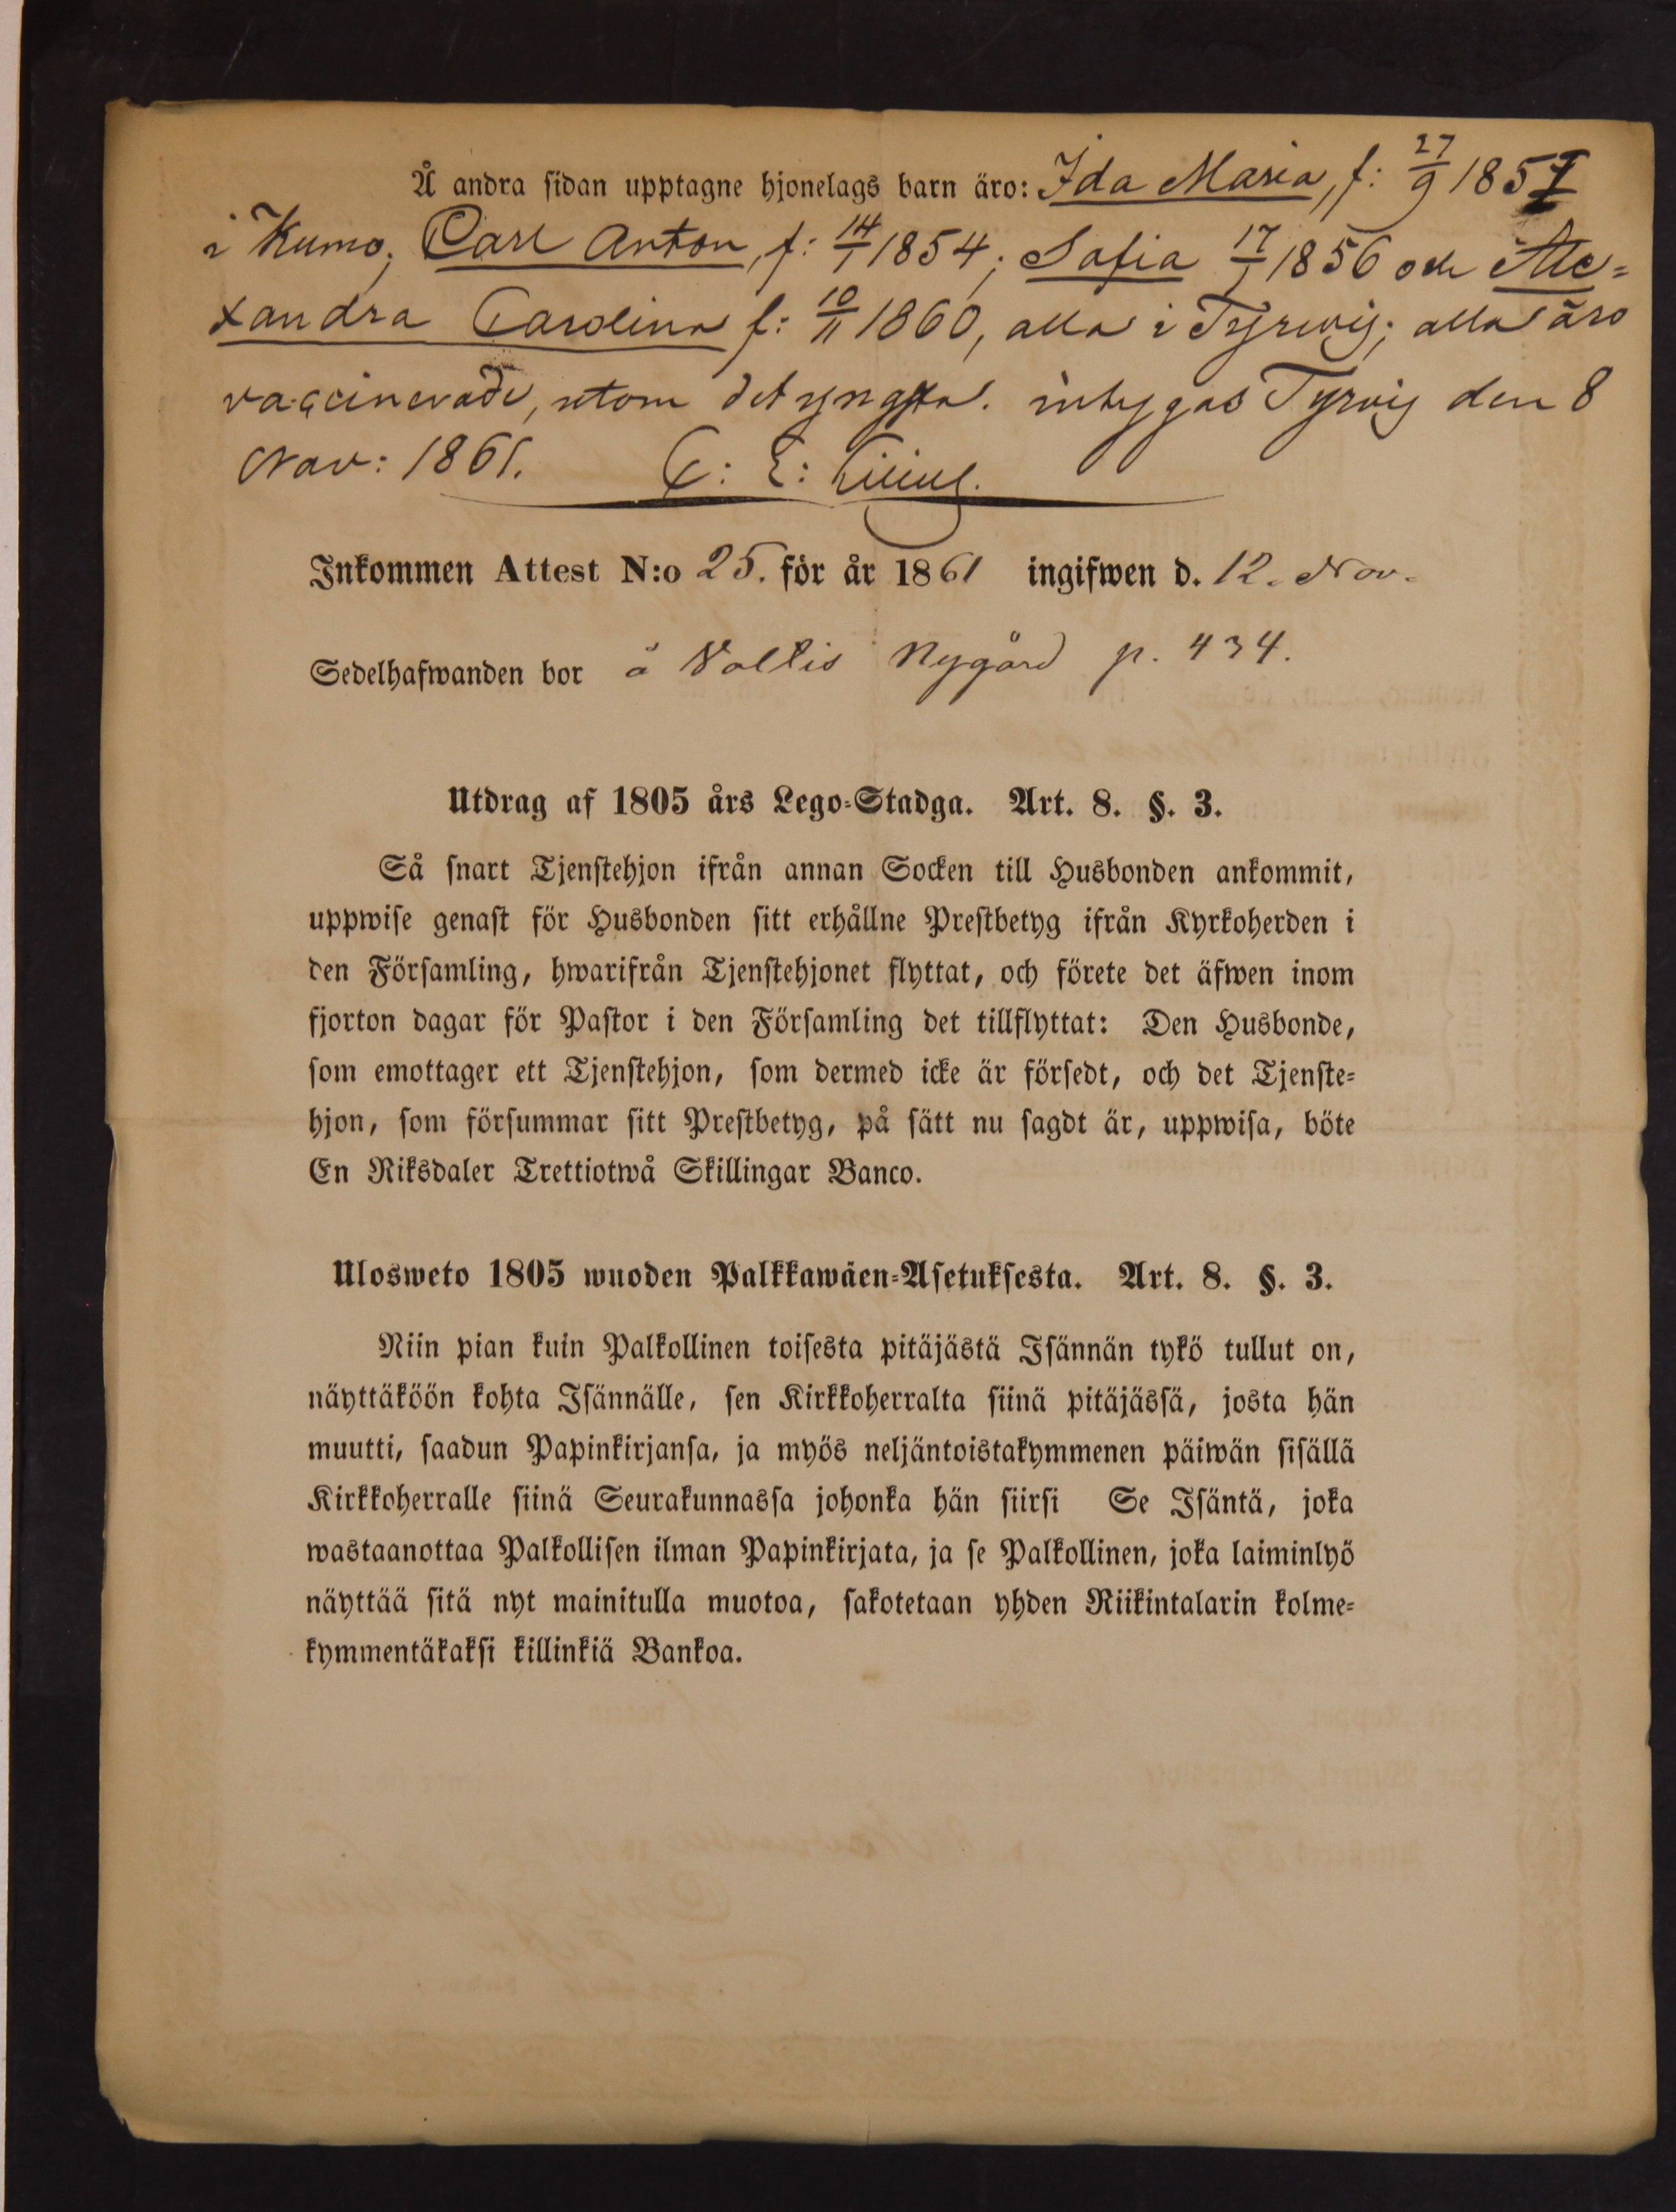 Å andra sidan upptagne hjonelags barn äro: Ida Maria, f: 27/9 1851
i Kumo; Carl Anton, f: 14/1 1854; Sofia 17/1 1856 och Ale=
xandra Carolina f: 10/11 1860, alla i Tyrvis; alla äro
vaccinerade, utom det yngsta. intygas Tyrvis den 8
Nov: 1861. C: E:
Inkommen Attest N:o 25. för år 1861 ingifwen d. 12. Nov.
Sedelhafwanden bor å Voltis Nygård p. 434.
Utdrag af 1805 års Lego=Stadga. Art. 8. §. 3.
Så snart Tjenstehjon ifrån annan Socken till Husbonden ankommit,
uppwise genast för Husbonden sitt erhållne Prestbetyg ifrån Kyrkoherden i
den Församling, hwarifrån Tjenstehjonet flyttat, och förete det äfwen inom
fjorton dagar för Pastor i den Församling det tillflyttat: Den Husbonde,
som emottager ett Tjenstehjon, som dermed icke är försedt, och det Tjenste=
hjon, som försummar sitt Prestbetyg, på sätt nu sagdt är, uppwisa, böte
En Riksdaler Trettiotwå Skillingar Banco.
Ulosweto 1805 wuoden Palkkawäen=Asetuksesta. Art. 8. §. 3.
Niin pian kuin Palkollinen toisesta pitäjästä Isännän tykö tullut on,
näyttäköön kohta Isännälle, sen Kirkkoherralta siinä pitäjässä, josta hän
muutti, saadun Papinkirjansa, ja myös neljäntoistakymmenen päiwän sisällä
Kirkkoherralle siinä Seurakunnassa johonka hän siirsi Se Isäntä, joka
wastaanottaa Palkollisen ilman Papinkirjata, ja se Palkollinen, joka laiminlyö
näyttää sitä nyt mainitulla muotoa, sakotetaan yhden Riikintalarin kolme=
kymmentäkaksi killinkiä Bankoa.